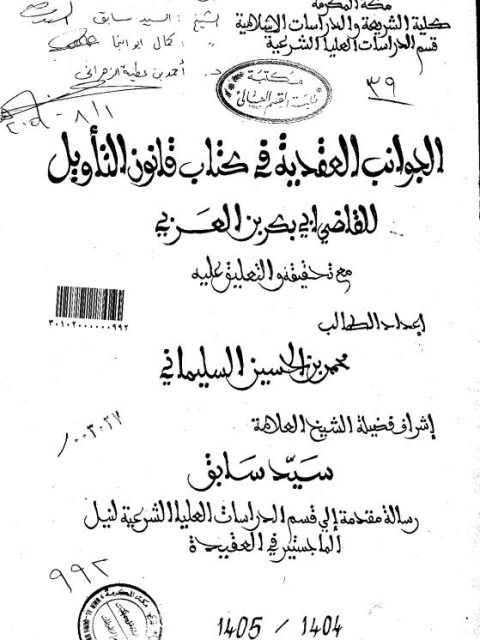 مكة المكرمة
كلية الشريعة والدراسات الإسلامية
قسم الدراسات العليا الشرعية
الشيخ : السيد سابق
كمال
د. أحمد بن عطية الزهراني
٣٩
مكتبة
طلبة القسم العالي
الجوانب العقدية في كتاب قانون التأويل
للقاضي أبي بكر بن العربي
مع تحقيقه والتعليق عليه
٣٠١٠٢٠٠٠٠٠٠٩٩٢
إعداد الطالب
محمد بن الحسين السليماني
إشراف فضيلة الشيخ العلامة
سيّد سابق
رسالة مقدمة إلى قسم الدراسات العليا الشرعية لنيل
الماجستير في العقيدة
٩٩٢
مكة المكرمة
1405 / 1404